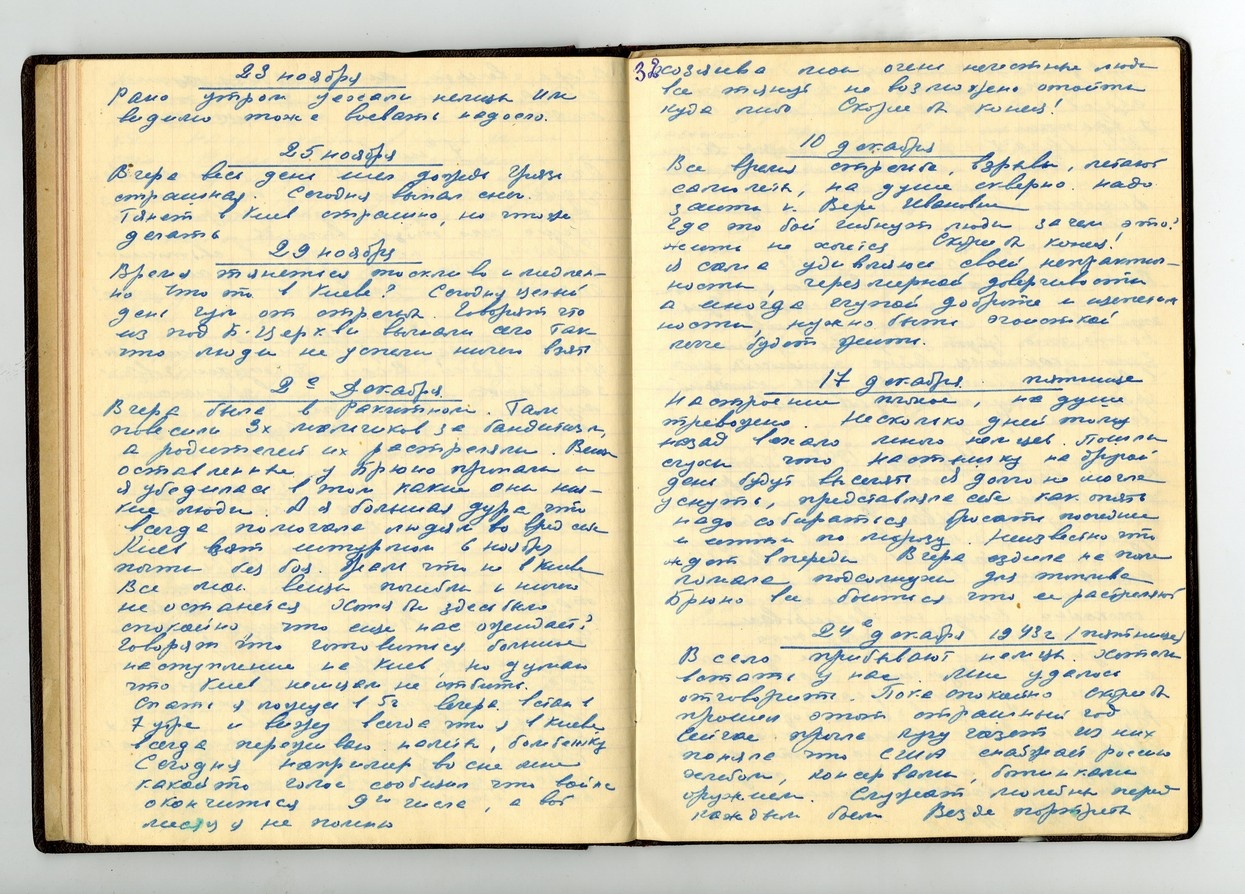 23 ноября
Рано утром уехали немцы им
видимо тоже воевать надоело.
25 ноября
Вчера весь день шел дождь грязь
страшная. Сегодня выпал снег.
Тянет в Киев страшно, но что же
делать
29 ноября
Время тянется тоскливо и медлен-
но что то в Киеве? Сегодня целый
день гул от стрельб. Говорят что
из под Б-Церкви выгнали село так
что люди не успели ничего взять
2е Декабря.
Вчера была в Ракитном. Там
повесили 3х мальчиков за бандитизм,
а родителей их расстреляли. Вещи
оставленные у Брюно пропали и
я убедилась в том какие они низ-
кие люди. А я большая дура что
всегда помогала людям во вред себе
Киев взят штурмом 6 ноября
почти без боя. Жаль что не в Киеве
Все мои вещи погибли и ничего
не останется Хотя бы здесь было
спокойно что еще нас ожидает?
Говорят что готовится большое
наступление на Киев но думаю
что Киев немцам не отбить.
Спать я ложусь в 5ч вечера встаю в
7 утра и вижу всегда что я в Киеве
всегда переживаю налеты, бомбежку
Сегодня например во сне мне
какой то голос сообщил что война
окончится 9го числа, а вот
месяц я не помню
32
хозяева мои очень нечестные люди
все тянут не возможно отойти
куда либо Скорей б конец!
10 декабря
Все время стрельба, взрывы, летают
самолеты, на душе скверно. надо
зайти к Вере Ивановне
Где то бой гибнут люди зачем это?
жить не хочется Скорей б конец!
Я сама удивляюсь своей непрактич-
ности, черезмерной доверчивости
а иногда глупой доброте и щепетиль
ности, нужно быть эгоисткой
легче будет жить.
17 декабря. пятница
Настроение плохое, на душе
тревожно. Несколько дней тому
назад въехало много немцев. Пошли
слухи что Насташку на другой
день будут выселять Я долго не могла
уснуть, представляла себе как опять
надо собираться бросать последнее
и идти по морозу. Неизвестно что
ждет впереди Вчера ездила на поле
ломала подсолнухи для топлива
Брюно все боится что ее расстреляют
24е декабря 1943г /пятница/
В село прибывают немцы. Хотели
встать у нас. Мне удалось
отговорить. Пока спокойно скорей б
прошел этот страшный год
Сейчас прочла кучу газет из них
поняла что США снабжает россию
хлебом, консервами, ботинками
оружием. Служат молебны перед
каждым боем Везде портреты